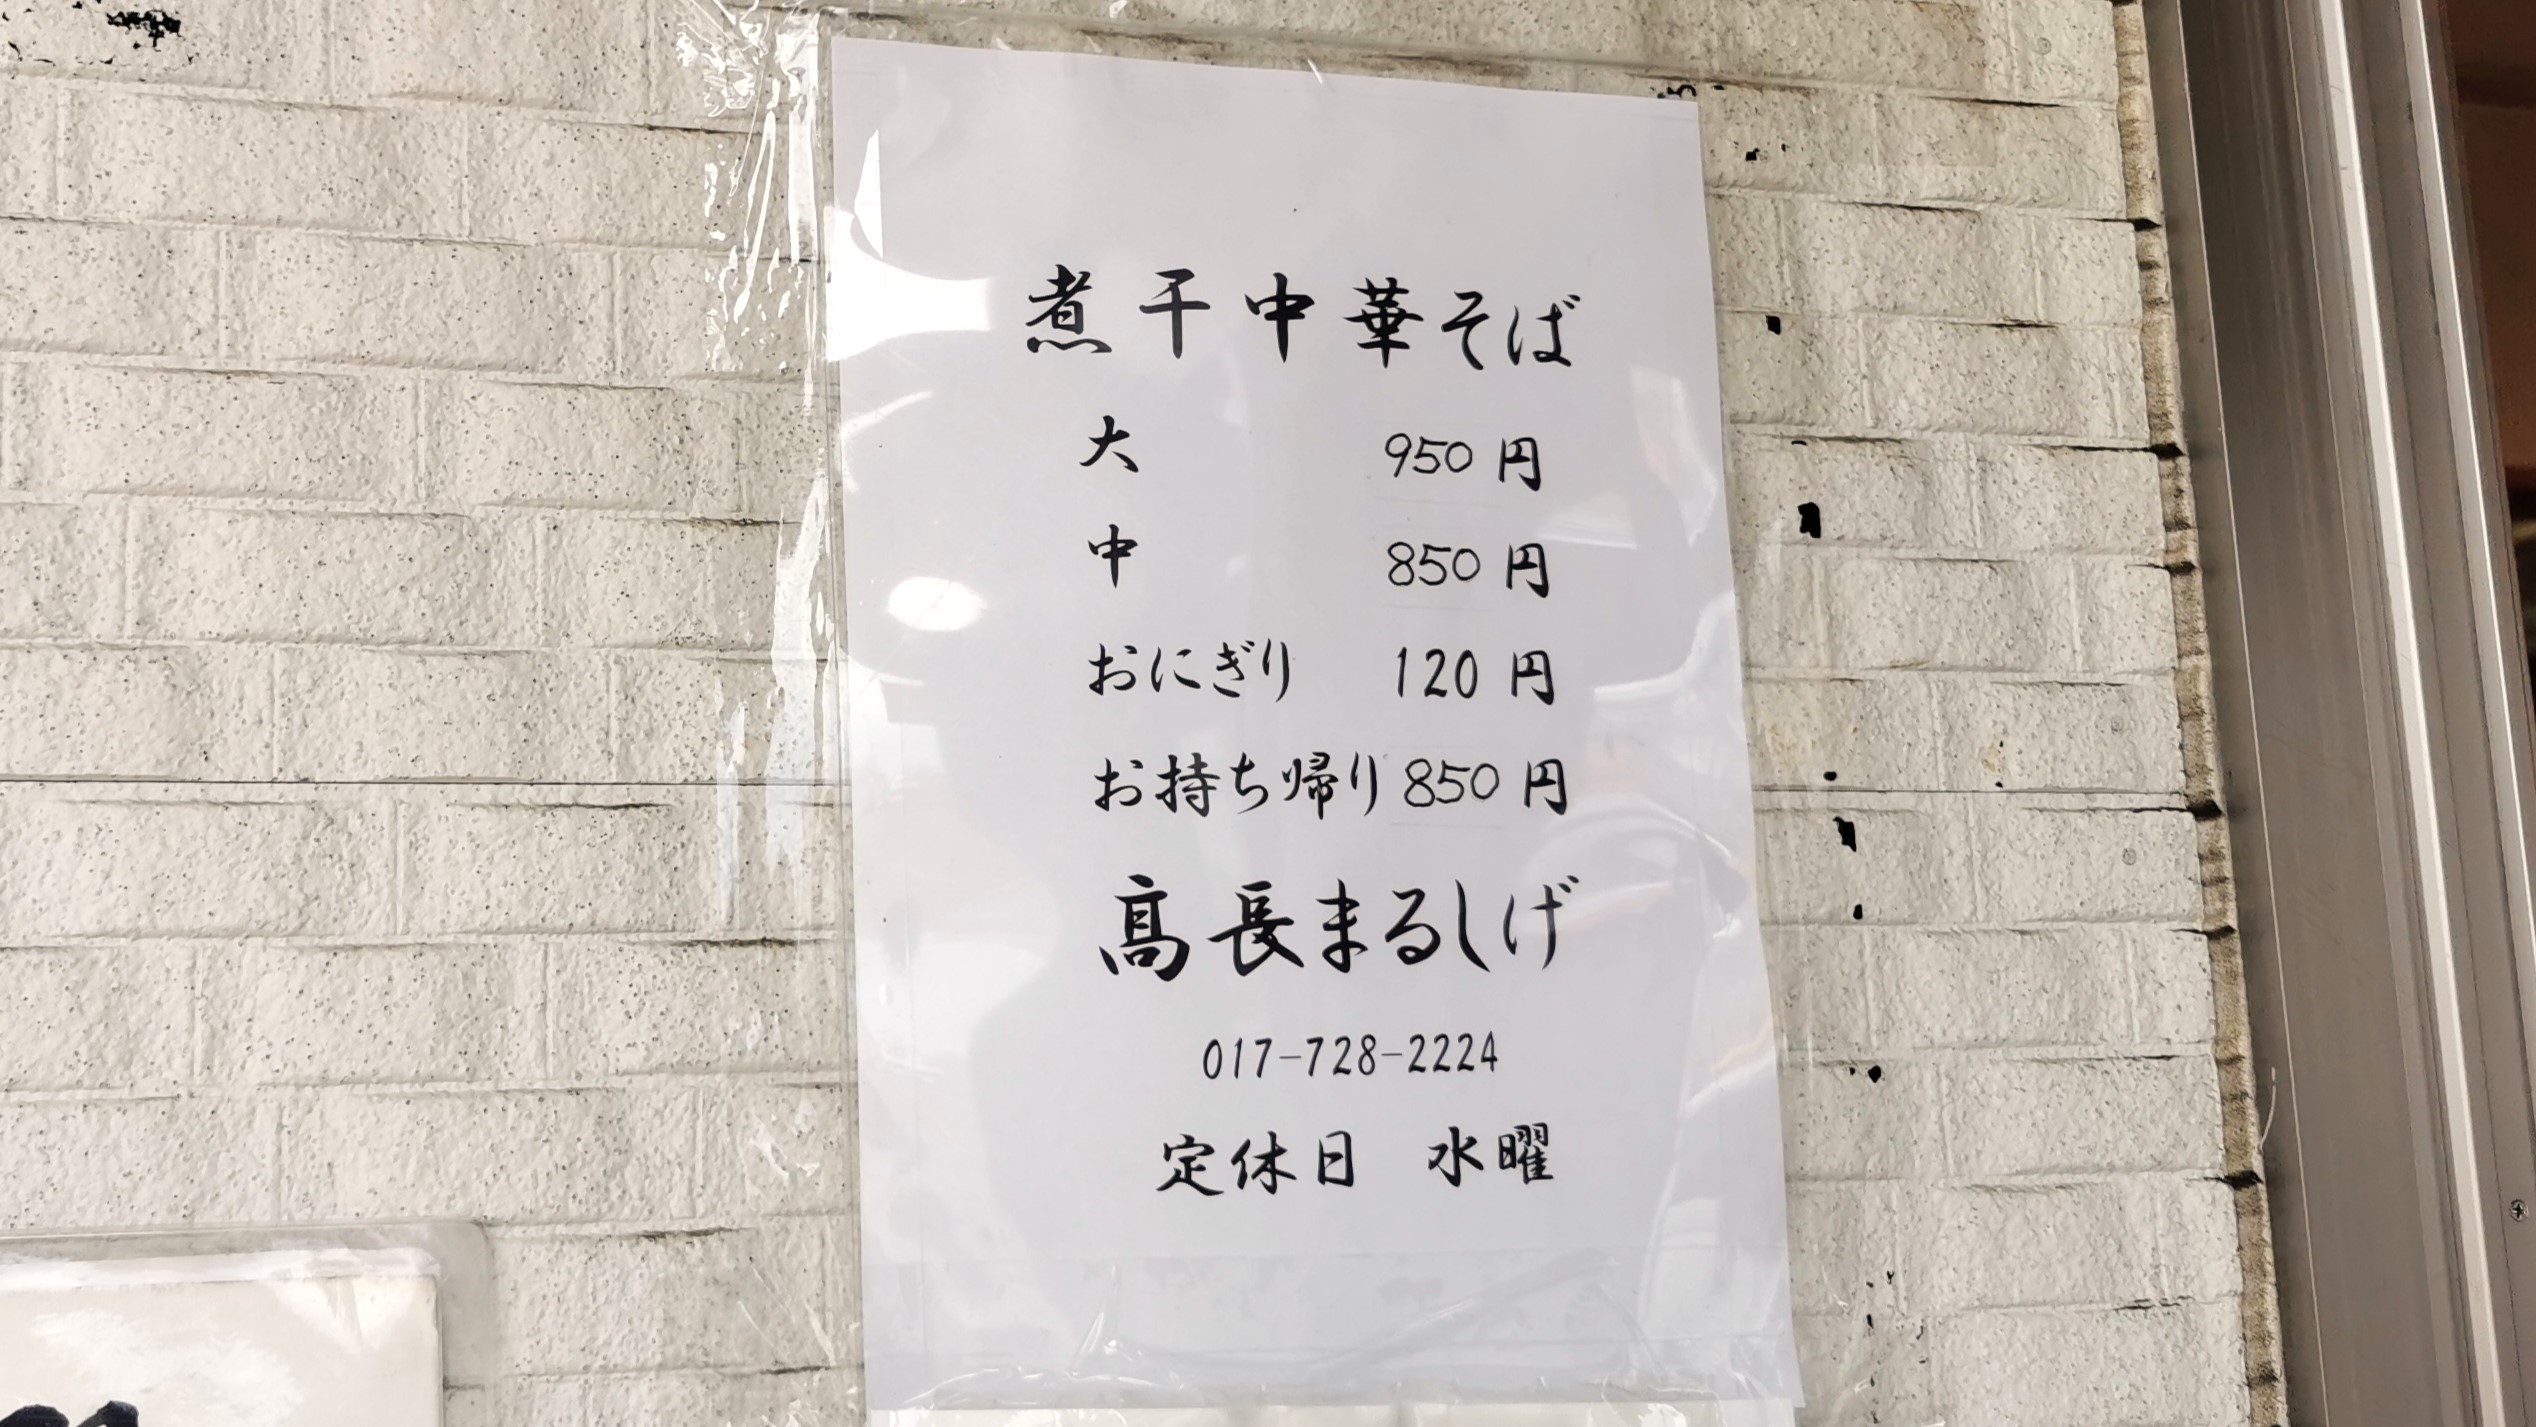 煮干中華そば
大 950円
中 850円
おにぎり 120円
お持ち帰り 850円
髙長まるしげ
017-728-2224
定休日 水曜